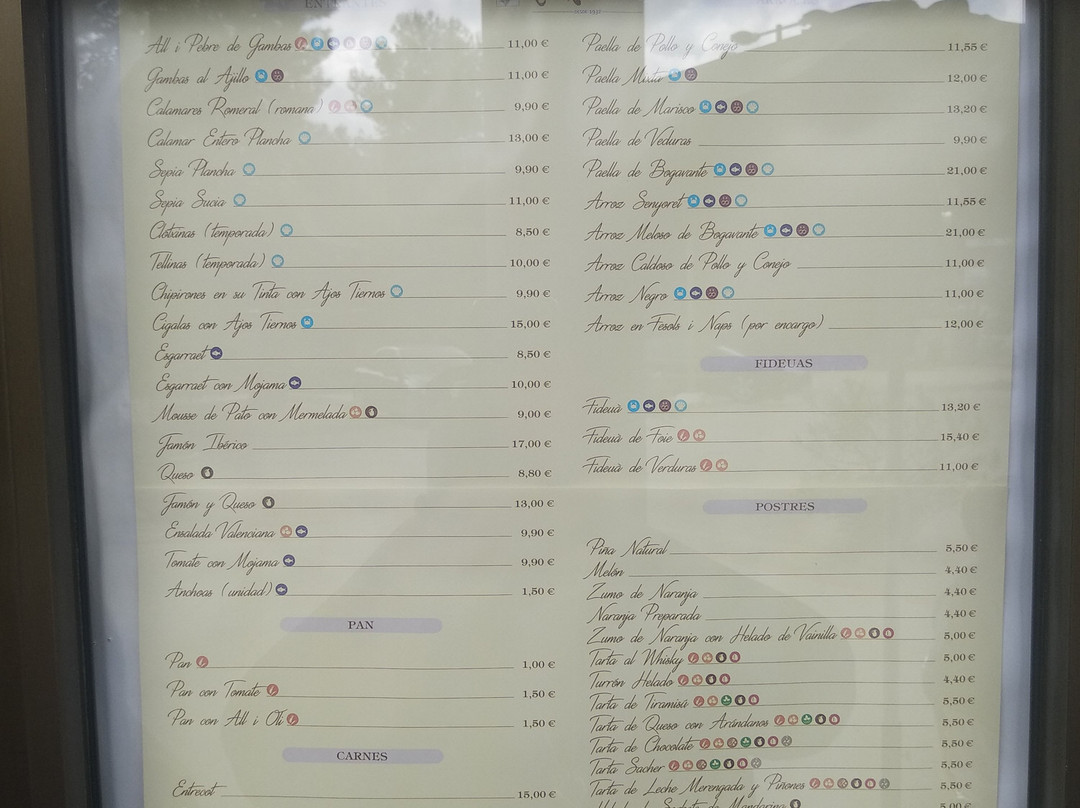 ENTRANTES
All i Pebre de Gambas 11,00 €
Gambas al Ajillo 11,00 €
Calamares Romeral (romana) 9,90 €
Calamar Entero Plancha 13,00 €
Sepia Plancha 9,90 €
Sepia Sucia 11,00 €
Clotxinas (temporada) 8,50 €
Tellinas (temporada) 10,00 €
Chipirones en su Tinta con Ajos Tiernos 9,90 €
Cigalas con Ajos Tiernos 15,00 €
Esgarraet 8,50 €
Esgarraet con Mojama 10,00 €
Mousse de Pato con Mermelada 9,00 €
Jamón Ibérico 17,00 €
Queso 8,80 €
Jamón y Queso 13,00 €
Ensalada Valenciana 9,90 €
Tomate con Mojama 9,90 €
Anchoas (unidad) 1,50 €
PAN
Pan 1,00 €
Pan con Tomate 1,50 €
Pan con All i Oli 1,50 €
CARNES
Entrecot 15,00 €
Paella de Pollo y Conejo 11,55 €
Paella Mixta 12,00 €
Paella de Marisco 13,20 €
Paella de Veduras 9,90 €
Paella de Bogavante 21,00 €
Arroz Senyoret 11,55 €
Arroz Meloso de Bogavante 21,00 €
Arroz Caldoso de Pollo y Conejo 11,00 €
Arroz Negro 11,00 €
Arroz en Fesols i Naps (por encargo) 12,00 €
FIDEUAS
Fideuà 13,20 €
Fideuà de Foie 15,40 €
Fideuà de Verduras 11,00 €
POSTRES
Piña Natural 5,50 €
Melón 4,40 €
Zumo de Naranja 4,40 €
Naranja Preparada 4,40 €
Zumo de Naranja con Helado de Vainilla 5,00 €
Tarta al Whisky 5,00 €
Turrón Helado 4,40 €
Tarta de Tiramisú 5,50 €
Tarta de Queso con Arándanos 5,50 €
Tarta de Chocolate 5,50 €
Tarta Sacher 5,50 €
Tarta de Leche Merengada y Piñones 5,50 €
de Mandarina 5,00 €